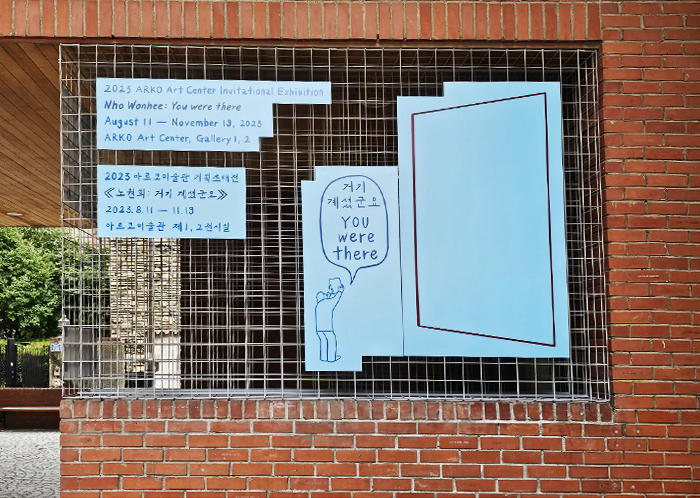 2023 ARKO Art Center Invitational Exhibition
Nho Wonhee: You were there
August 11 — November 19, 2023
ARKO Art Center, Gallery 1, 2
2023 아르코미술관 기획초대전
《노원희: 거기 계셨군요》
2023.8.11 — 11.19
아르코미술관 제1, 2전시실
거기
계셨군요
YOU
were
there